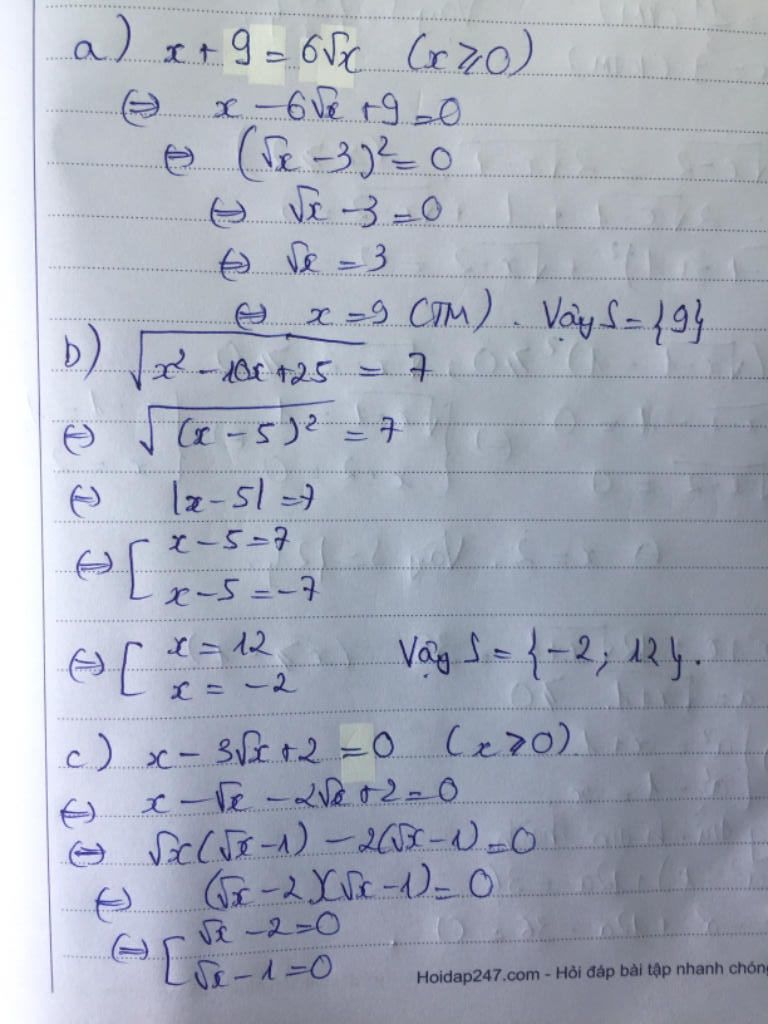 a) x + 9 = 6√x (x ⩾ 0)
⇔ x - 6√x + 9 = 0
⇔ (√x - 3)² = 0
⇔ √x - 3 = 0
⇔ √x = 3
⇔ x = 9 (TM). Vậy S = {9}
b) √(x² - 10x + 25) = 7
⇔ √((x - 5)²) = 7
⇔ |x - 5| = 7
⇔ [ x - 5 = 7
x - 5 = -7
⇔ [ x = 12
x = -2 Vậy S = {-2; 12}.
c) x - 3√x + 2 = 0 (x ⩾ 0)
⇔ x - √x - 2√x + 2 = 0
⇔ √x(√x - 1) - 2(√x - 1) = 0
⇔ (√x - 2)(√x - 1) = 0
⇔ [ √x - 2 = 0
√x - 1 = 0
Hoidap247.com - Hỏi đáp bài tập nhanh chóng